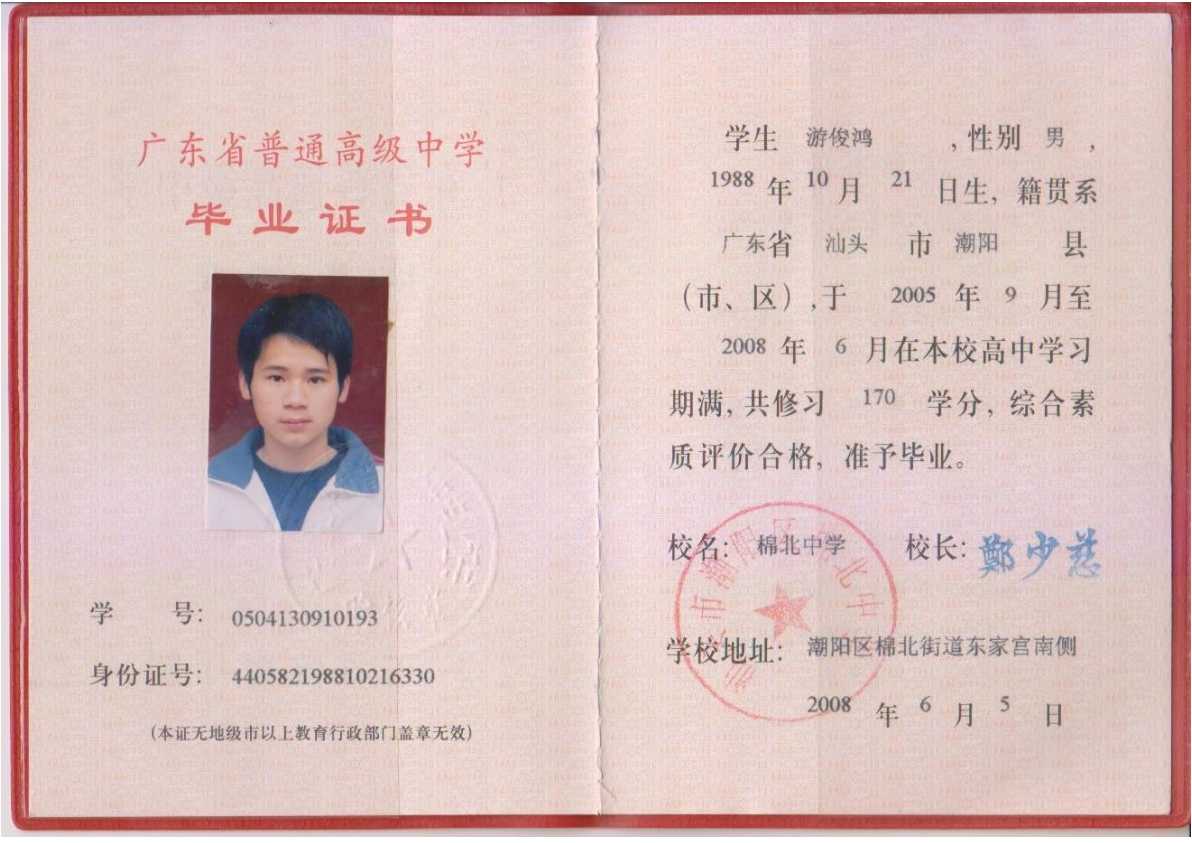 广东省普通高级中学
毕业证书
学 号: 0504130910193
身份证号: 440582198810216330
(本证无地级市以上教育行政部门盖章无效)
学生 游俊鸿 ,性别 男 ,
1988 年 10 月 21 日生, 籍贯系
广东省 汕头 市 潮阳 县
(市、区),于 2005 年 9 月至
2008 年 6 月在本校高中学习
期满, 共修习 170 学分, 综合素
质评价合格, 准予毕业。
校名: 棉北中学 校长: 鄭少慈
学校地址: 潮阳区棉北街道东家宫南侧
2008 年 6 月 5 日